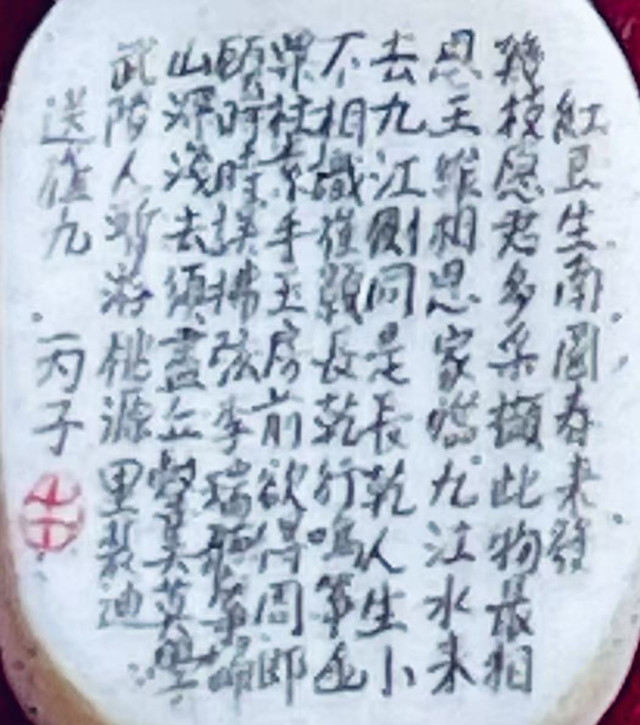 紅豆生南國春来發
幾枝愿君多采擷此物最相
思王維相思家臨九江水来
去九江側同是長乾人生小
不相識崔顥長乾行鳴箏金
粟柱素手玉房前欲得周郎
顧時時誤拂弦李端聽箏歸
山深淺去須盡丘壑美莫學
武陵人暫游桃源里裴迪
送崔九 丙子